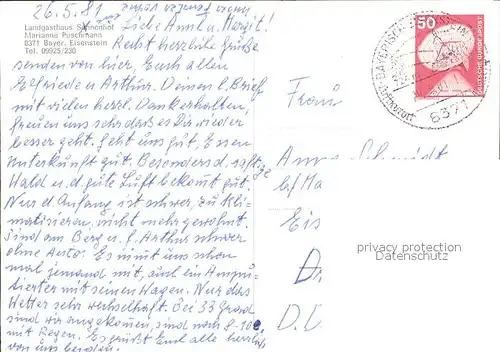 26.5.81
Landgasthaus Sonnenhof
Marianne Puschmann
8371 Bayer. Eisenstein
Tel. 09925/230
Liebe Annl u. Margit!
Recht herzliche Grüße
senden von hier, Euch allen
Elfriede u. Arthur. Deinen l. Brief
mit vielen herzl. Dank erhalten,
freuen uns sehr daß es Dir wieder
besser geht. Geht uns gut, Essen
Unterkunft gut. Besonders d. saftige
Wald u. d. gute Luft bekommt gut.
Nur d. Anfang ist schwer, zu kli-
matisieren, nicht mehr gewöhnt.
Sind am Berg u. f. Arthur schwer
ohne Auto. Es nimmt uns schon
mal jemand mit, auch ein Ampu-
tierter mit seinen Wagen. Nur das
Wetter sehr wechselhaft. Bei 33 Grad
sind wir angekommen, sind noch 8-10°
mit Regen. Es grüßt Euch alle herzlich
von uns beiden.
50
DEUTSCHE BUNDESPOST
BAYERISCH EISENSTEIN
Luftkurort
8371
Frau
Schmidt
b/Ma
Eis
D.
privacy protection
Datenschutz